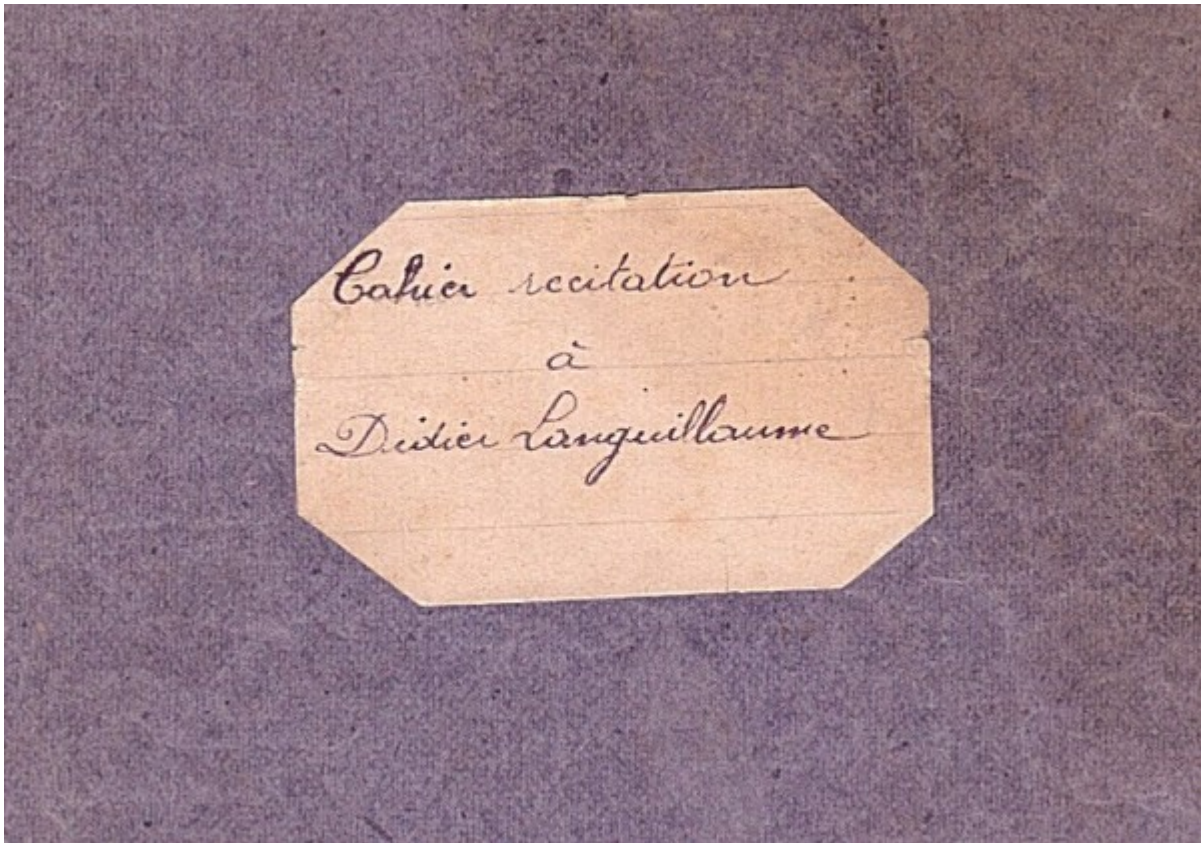 Cahier recitation
à
Didier Languillaume